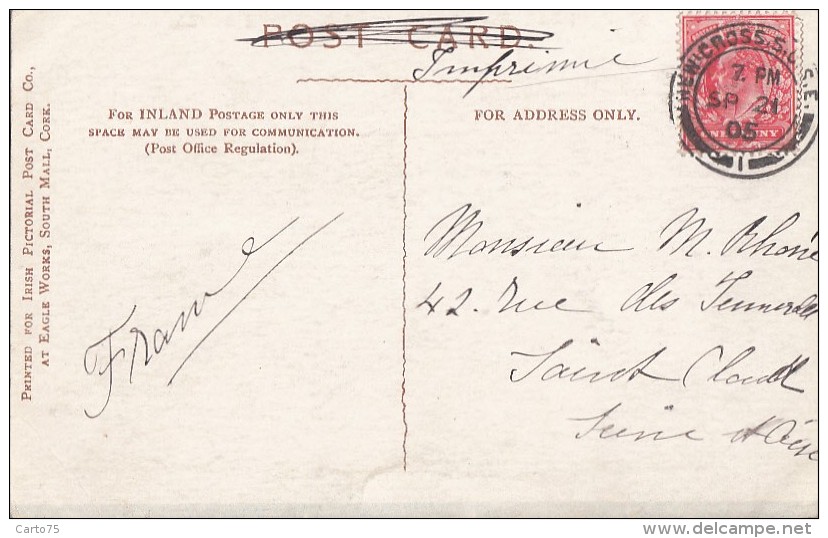 POST CARD.
Imprimé
FOR INLAND POSTAGE ONLY THIS
SPACE MAY BE USED FOR COMMUNICATION.
(Post Office Regulation).
FOR ADDRESS ONLY.
7 PM
SP 21
05
PRINTED FOR IRISH PICTORIAL POST CARD CO.,
AT EAGLE WORKS, SOUTH MALL, CORK.
Monsieur M. Rhoné
42. rue des
Saint Cloud
Seine et Oise
France
Carto75
www.delcampe.net